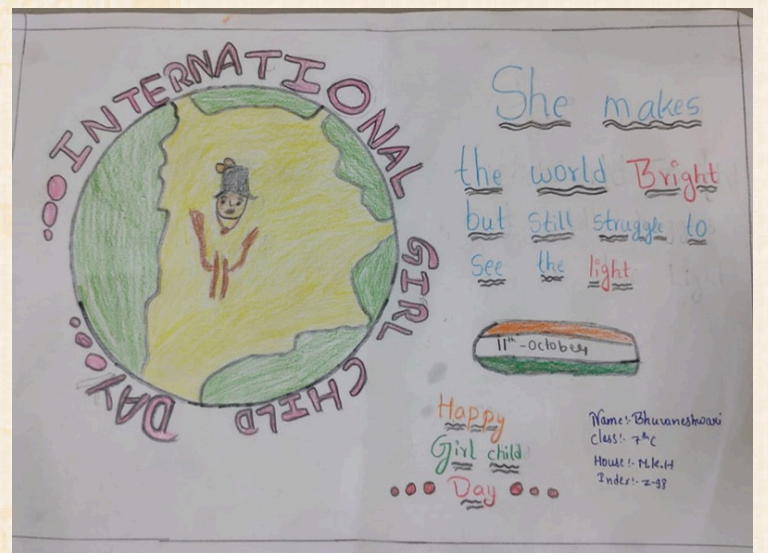 INTERNATIONAL GIRL CHILD DAY
She makes
the world Bright
but still struggle to
see the light
11th - October
Happy
Girl child
Day
Name:- Bhuvaneshwari
class:- 7th C
House:- M.K.H
Index:- Z-98